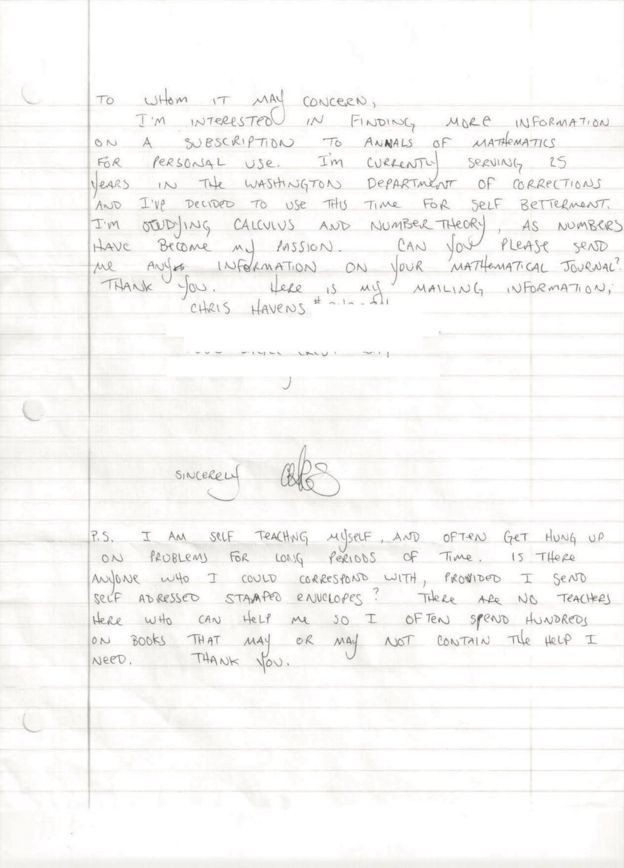 TO WHOM IT MAY CONCERN,
I'M INTERESTED IN FINDING MORE INFORMATION
ON A SUBSCRIPTION TO ANNALS OF MATHEMATICS
FOR PERSONAL USE. I'M CURRENTLY SERVING 25
YEARS IN THE WASHINGTON DEPARTMENT OF CORRECTIONS
AND I'VE DECIDED TO USE THIS TIME FOR SELF BETTERMENT.
I'M STUDYING CALCULUS AND NUMBER THEORY, AS NUMBERS
HAVE BECOME MY PASSION. CAN YOU PLEASE SEND
ME ANY INFORMATION ON YOUR MATHEMATICAL JOURNAL?
THANK YOU. HERE IS MY MAILING INFORMATION;
CHRIS HAVENS #
SINCERELY
P.S. I AM SELF TEACHING MYSELF, AND OFTEN GET HUNG UP
ON PROBLEMS FOR LONG PERIODS OF TIME. IS THERE
ANYONE WHO I COULD CORRESPOND WITH, PROVIDED I SEND
SELF ADRESSED STAMPED ENVELOPES? THERE ARE NO TEACHERS
HERE WHO CAN HELP ME SO I OFTEN SPEND HUNDREDS
ON BOOKS THAT MAY OR MAY NOT CONTAIN THE HELP I
NEED. THANK YOU.